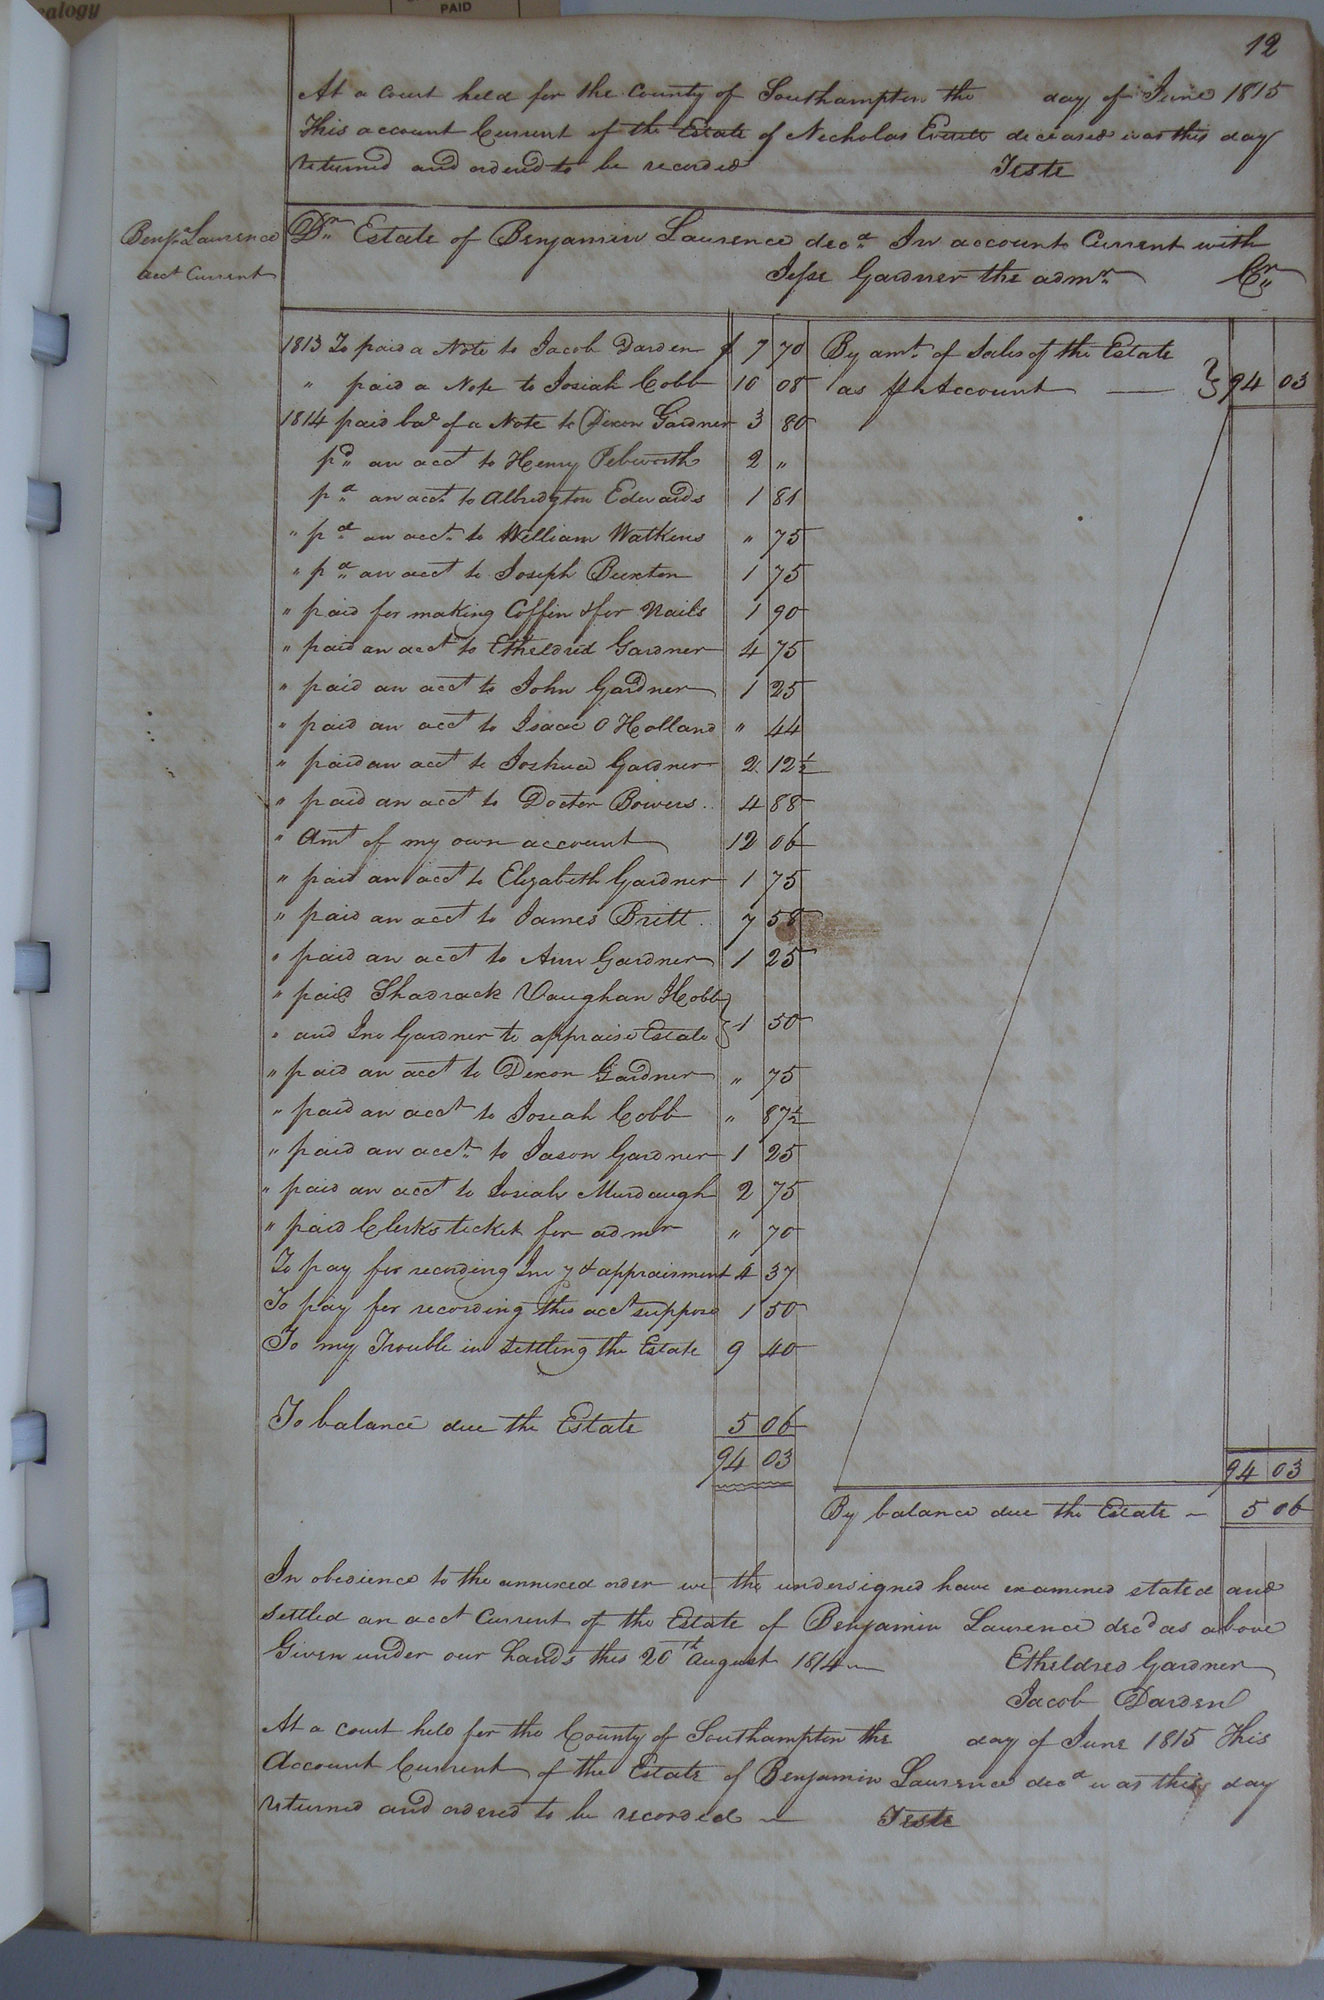 alogy
PAID
12
At a court held for the County of Southampton the day of June 1815
This account Current of the Estate of Necholas Everett deceased was this day
returned and ordered to be recorded Teste
Benja Laurence
acct Current
Dr Estate of Benjamin Laurence decd In account Current with
Jesse Gardner the admr Cr
1813 To paid a Note to Jacob Darden $ 7 70 By amt of Sales of the Estate
" paid a Note to Josiah Cobb 10 08 as pr Account 94 03
1814 paid bal of a Note to Dixon Gardner 3 80
pd an acct to Henry Pebworth 2 "
pd an acct to Albridgton Edwards 1 81
" pd an acct to William Watkins " 75
" pd an acct to Joseph Buxton 1 75
" paid for making Coffin & for Nails 1 90
" paid an acct to Etheldred Gardner 4 75
" paid an acct to John Gardner 1 25
" paid an acct to Isaac O Holland " 44
" paid an acct to Joshua Gardner 2 12½
" paid an acct to Doctor Bowers 4 88
" Amt of my own account 12 06
" paid an acct to Elizabeth Gardner 1 75
" paid an acct to James Britt 7 58
" paid an acct to Ann Gardner 1 25
" paid Shadrack Vaughan H Cobb
" and Jno Gardner to appraise Estate 1 50
" paid an acct to Dixon Gardner " 75
" paid an acct to Josiah Cobb " 87½
" paid an acct to Jason Gardner 1 25
" paid an acct to Josiah Murdaugh 2 75
" paid Clerks ticket for admr " 70
To pay for recording Invy & appraisment 4 37
To pay for recording this acct suppose 1 50
To my Trouble in settling the Estate 9 40
To balance due the Estate 5 06
94 03 94 03
By balance due the Estate 5 06
In obedience to the annexed order we the undersigned have examined stated and
settled an acct Current of the Estate of Benjamin Laurence decd as above
Given under our hands this 20th August 1814
Etheldred Gardner
Jacob Darden
At a court held for the County of Southampton the day of June 1815 This
Account Current of the Estate of Benjamin Laurence decd was this day
returned and ordered to be recorded Teste